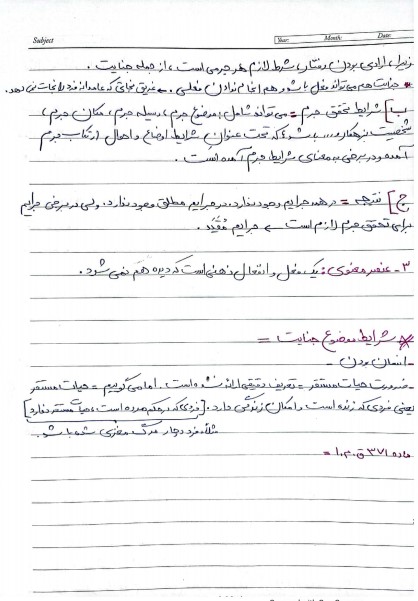 Subject Year: Month: Date:
زیرا، ارادی بودن رفتار، شرط لازم هر جرمی است، از جمله جنایت.
* جنایت هم می‌تواند فعل باشد و هم انجام ندادن فعلی. ← غریق نجاتی که عامدانه فرد را نجات نمی دهد.
ب] شرایط تحقق جرم = می‌تواند شامل: موضوع جرم، وسیله جرم، مکان جرم،
شخصیت بزهکار و ... باشد که تحت عنوان شرایط اوضاع و احوال ارتکاب جرم
آمده و در برخی به معنای شرایط جرم آمده است.
ج] نتیجه = در همه جرایم وجود ندارد. در جرایم مطلق وجود ندارد. ولی در برخی جرایم
برای تحقق جرم لازم است ← جرایم مُقَیَّد.
۳- عنصر معنوی: یک فعل و انفعال ذهنی است که دیده هم نمی شود.
* شرایط موضوع جنایت =
- انسان بودن -
- ضرورت حیات مستقر = تعریف دقیقی ارائه نشده است. اما می گوییم = حیات مستقر
یعنی فردی که زنده است و امکان زندگی دارد. [فردی که در حکم مرده است، حیات مستقر ندارد]
مثلا فرد دچار مرگ مغزی شده باشد.
ماده ۳۷۱ ق.م.ا =